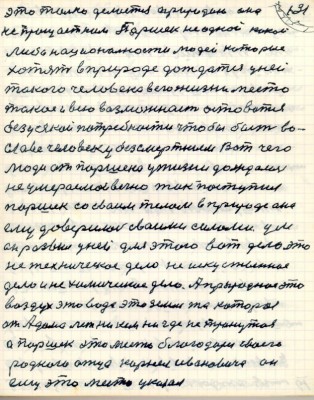 31
это только делается природою она
не прощает ним Паршек не одной какой
либо национальности людей которые
хотят в природе дождатся у ней
такого человека в его жизни место
такое и ево возможност остоватся
безусякой потребности чтобы быть во
славе человеку бесмертним Вот чего
люди от паршека у жизни дождалис
не умерат а вечно так поступил
паршек со своим телом в природе она
ему доверилас своими силами у ум
он развил у ней для этого вот дело это
не техническое дело не искуственное
дело и не химическое дело. А природное это
воздух это вода это земля та которая
от Адама лет никем нигде не тронутая
а Паршек это место благодаря своего
родного отца корнея ивановича он
ему это место указал